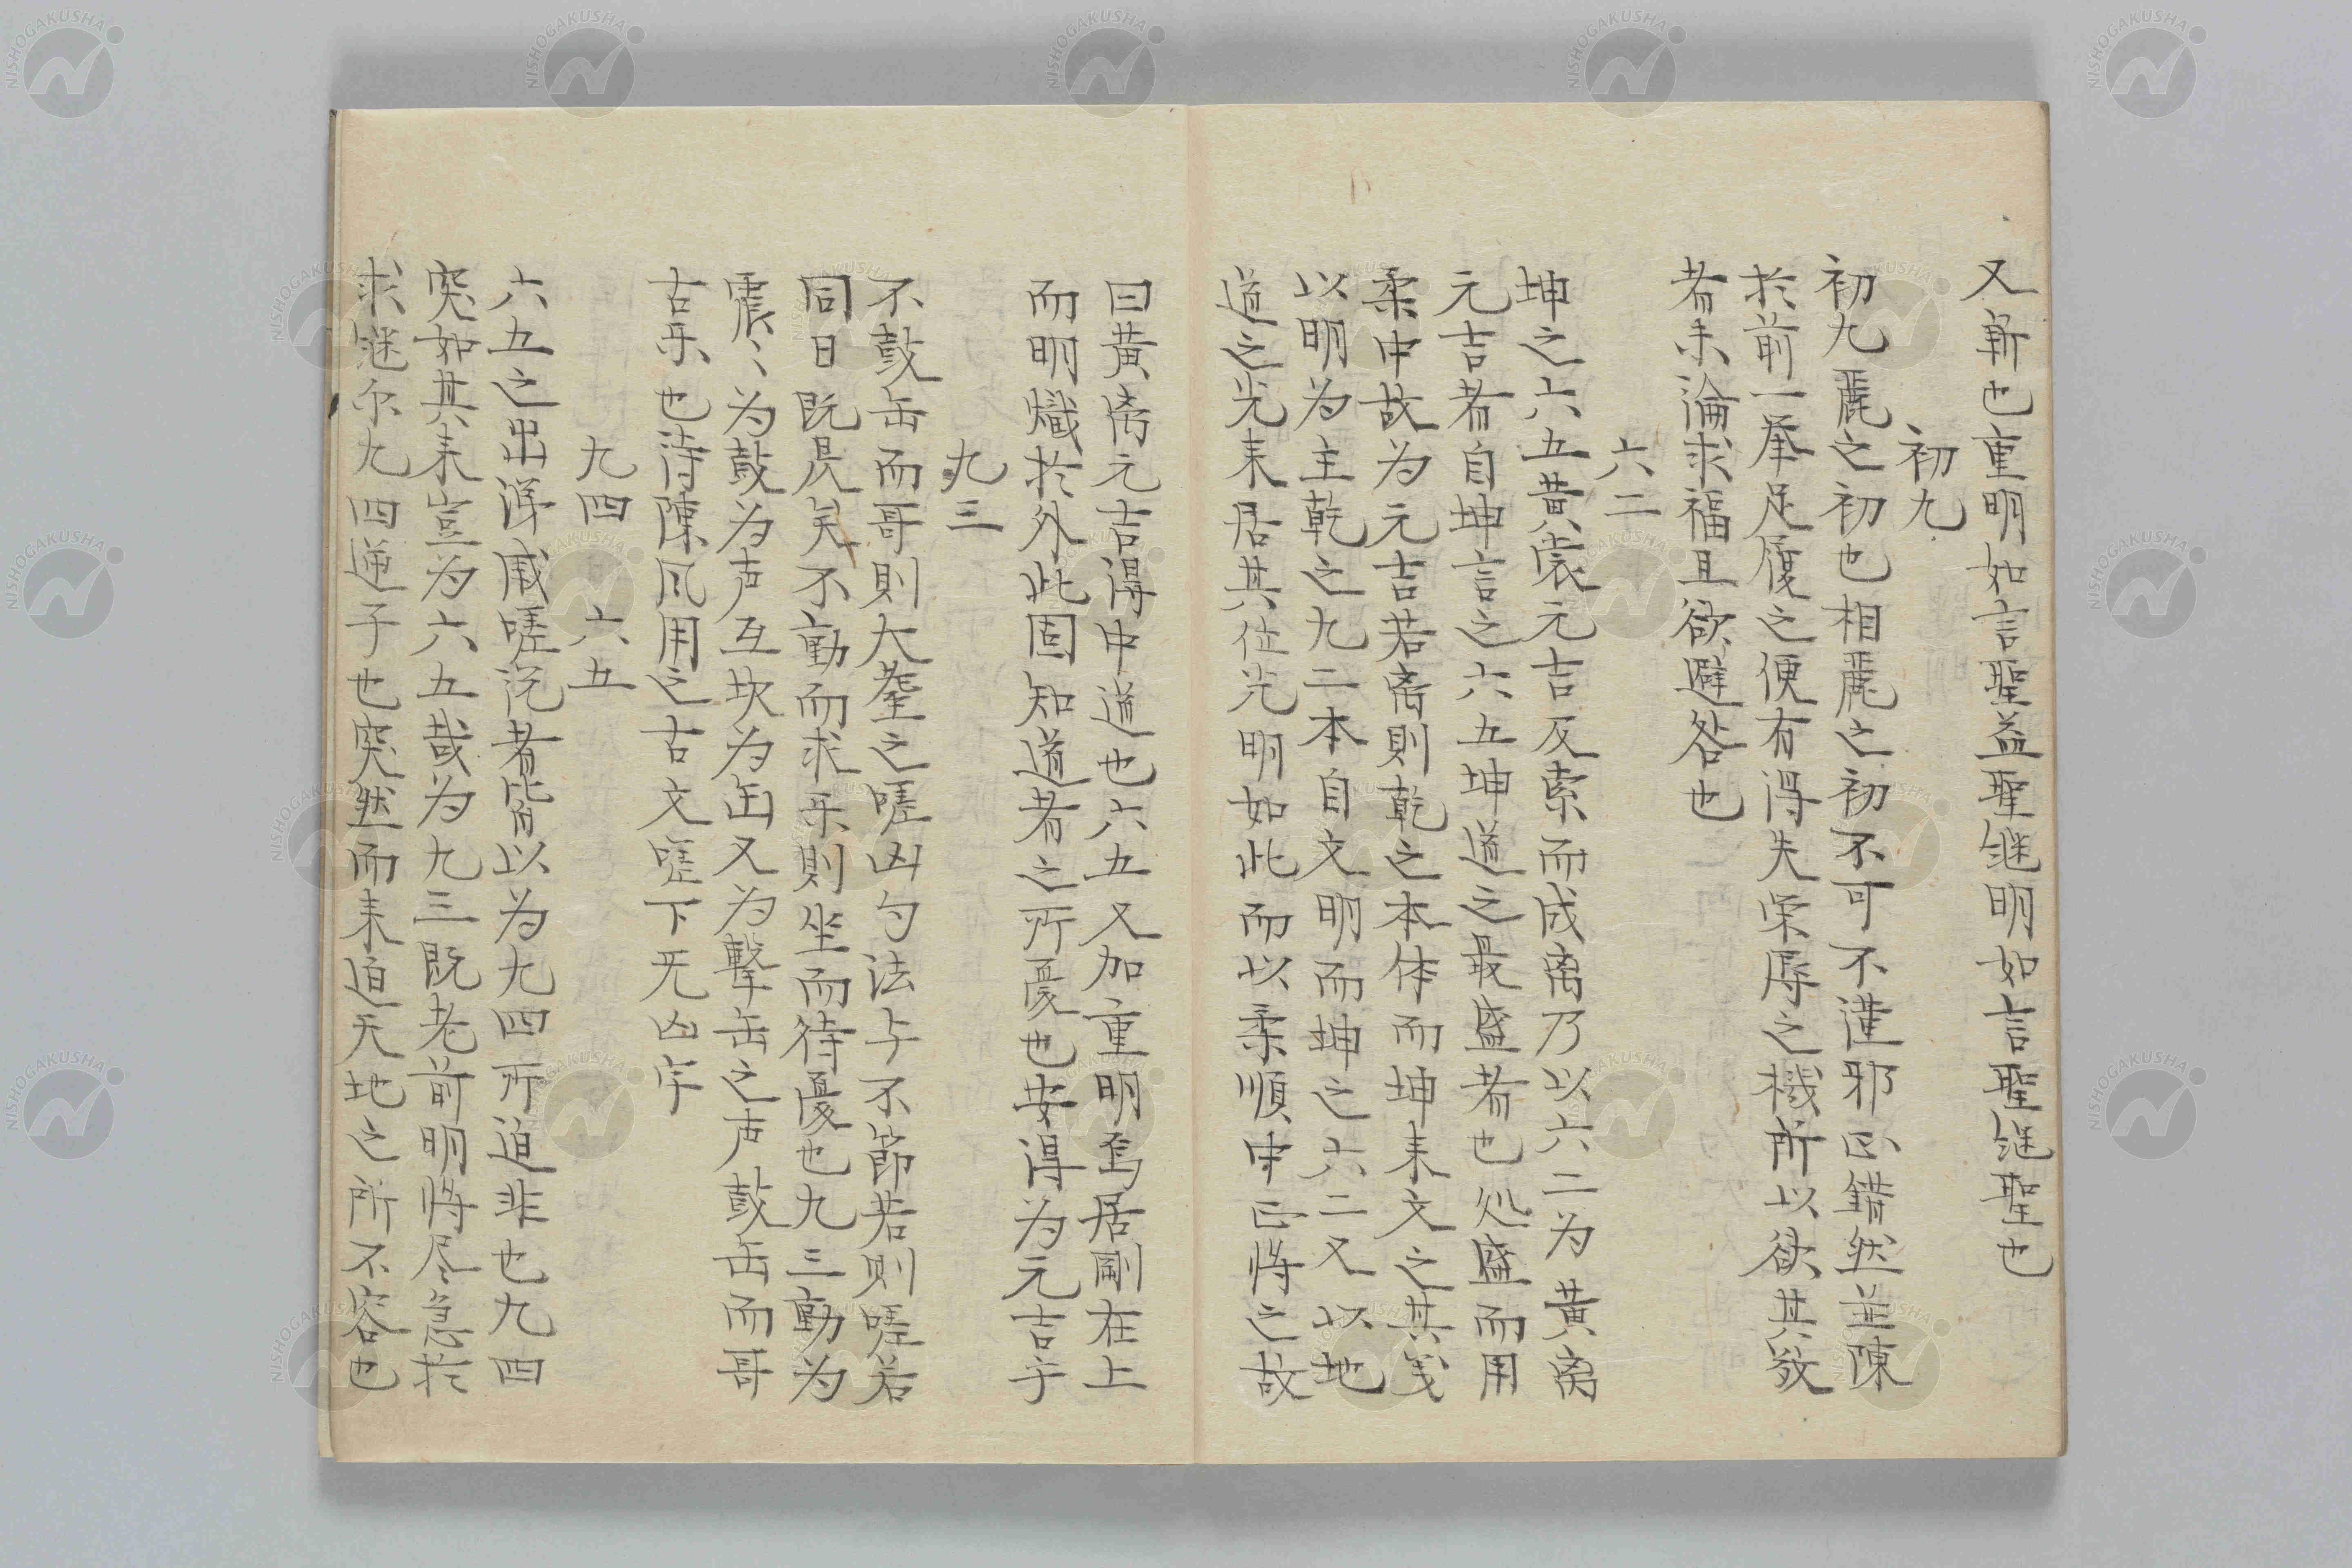 又新也重明如言聖益聖継明如言聖継聖也
初九
初九麗之初也相麗之初不可不謹邪正錯然並陳
於前一挙足履之便有得失栄辱之機所以欲其敬
者未論求福且欲避咎也
六二
坤之六五黄裳元吉反索而成离乃以六二為黄离
元吉者自坤言之六五坤道之最盛者也処盛而用
柔中故為元吉若离則乾之本体而坤来文之其義
以明為主乾之九二本自文明而坤之六二又以地
道之光来居其位光明如此而以柔順中正将之故
曰黄离元吉得中道也六五又加重明焉居剛在上
而明熾於外此固知道者之所憂也安得為元吉乎
九三
不鼓缶而哥則大耋之嗟凶句法与不節若則嗟若
同日既昃矣不動而求乐則坐而待憂也九三動為
震〻為鼓為声互坎為缶又為撃缶之声鼓缶而哥
古乐也待陳凨用之古文嗟下无凶字
九四 六五
六五之出涕戚嗟説者皆以為九四所迫非也九四
突如其来豈為六五哉為九三既老前明将尽急於
求継尓九四逆子也突然而来迫天地之所不容也
NISHOGAKUSHA